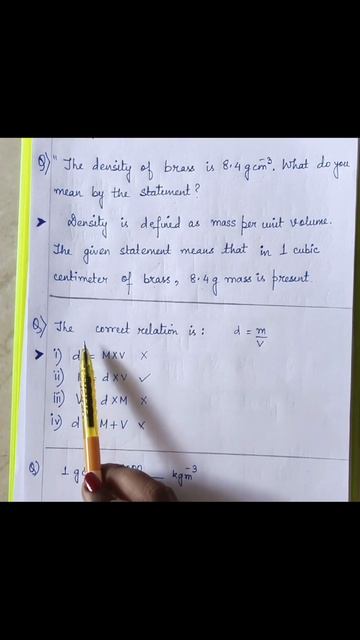 Q) "The density of brass is 8.4 g cm⁻³. What do you
mean by the statement?
➤ Density is defined as mass per unit volume.
The given statement means that in 1 cubic
centimeter of brass, 8.4 g mass is present.
Q) The correct relation is: d = m/v
➤ i) d = M×V ×
ii) = d×V ✓
iii) V d×M ×
iv) d M+V ×
Q) 1 g kgm⁻³